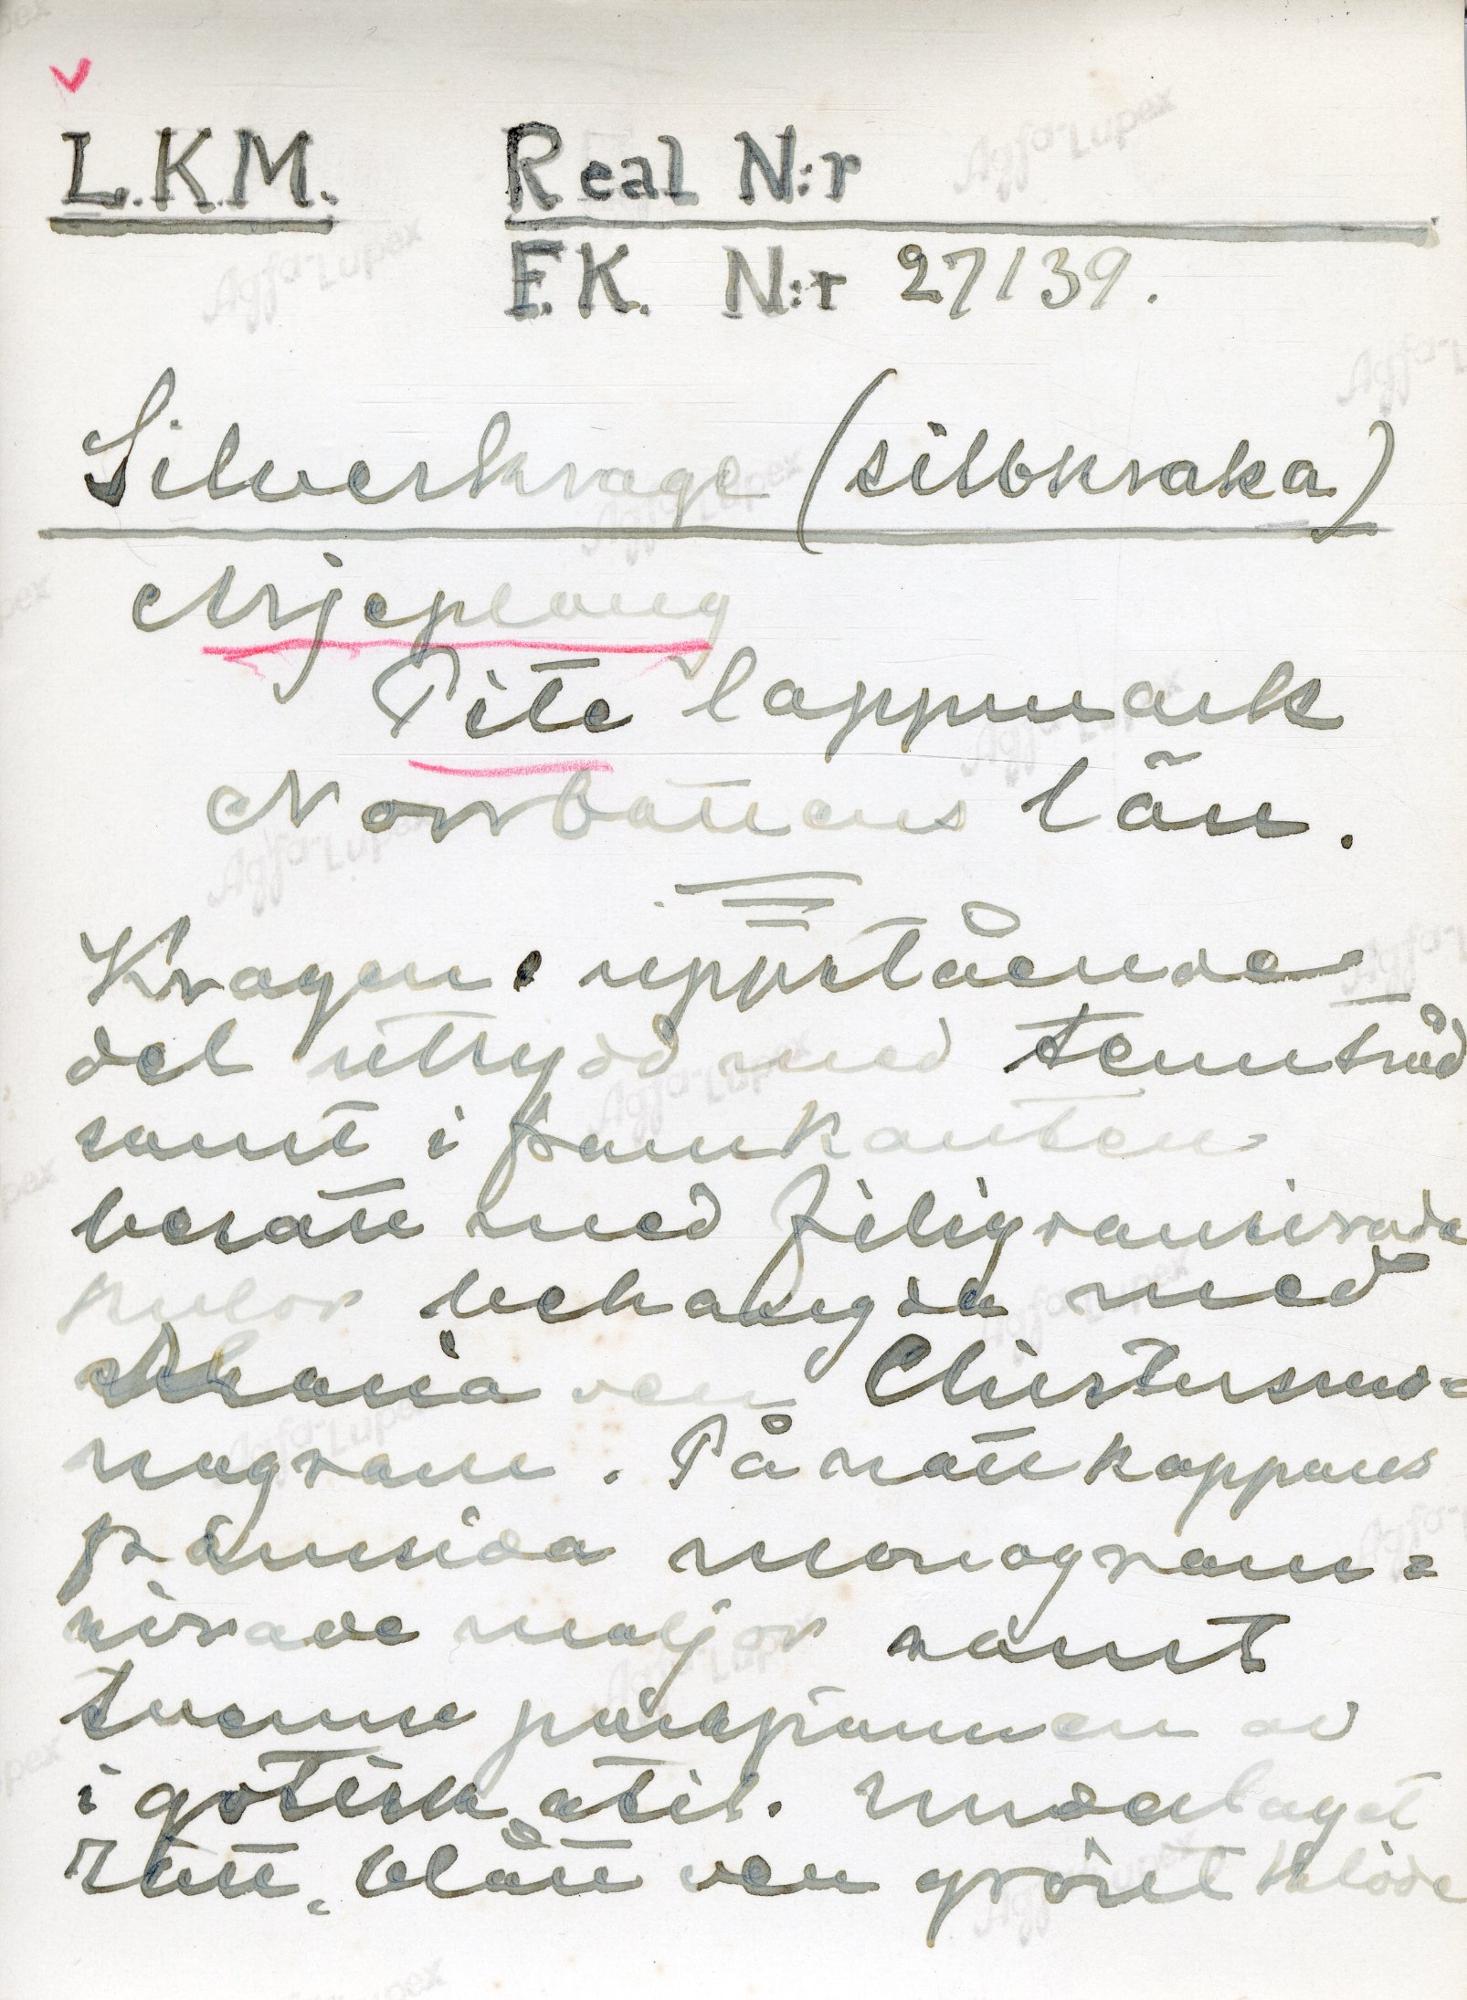 L.K.M. Real N:r
F.K. N:r 27/39.
Silverkrage (silbkraka)
Arjeplang
Pite lappmark
Norrbottens län.
Kragens uppstående
del utsydd med tenntråd
samt i framkanten
besatt med filigranserade
kulor behängda med
Maria och Christusmo=
nogram. På nattkappans
framsida monogram=
serade maljor samt
tvenne parspannen av
i gotisk stil. Underlaget
rött, blått och grönt kläde
Agfa-Lupex